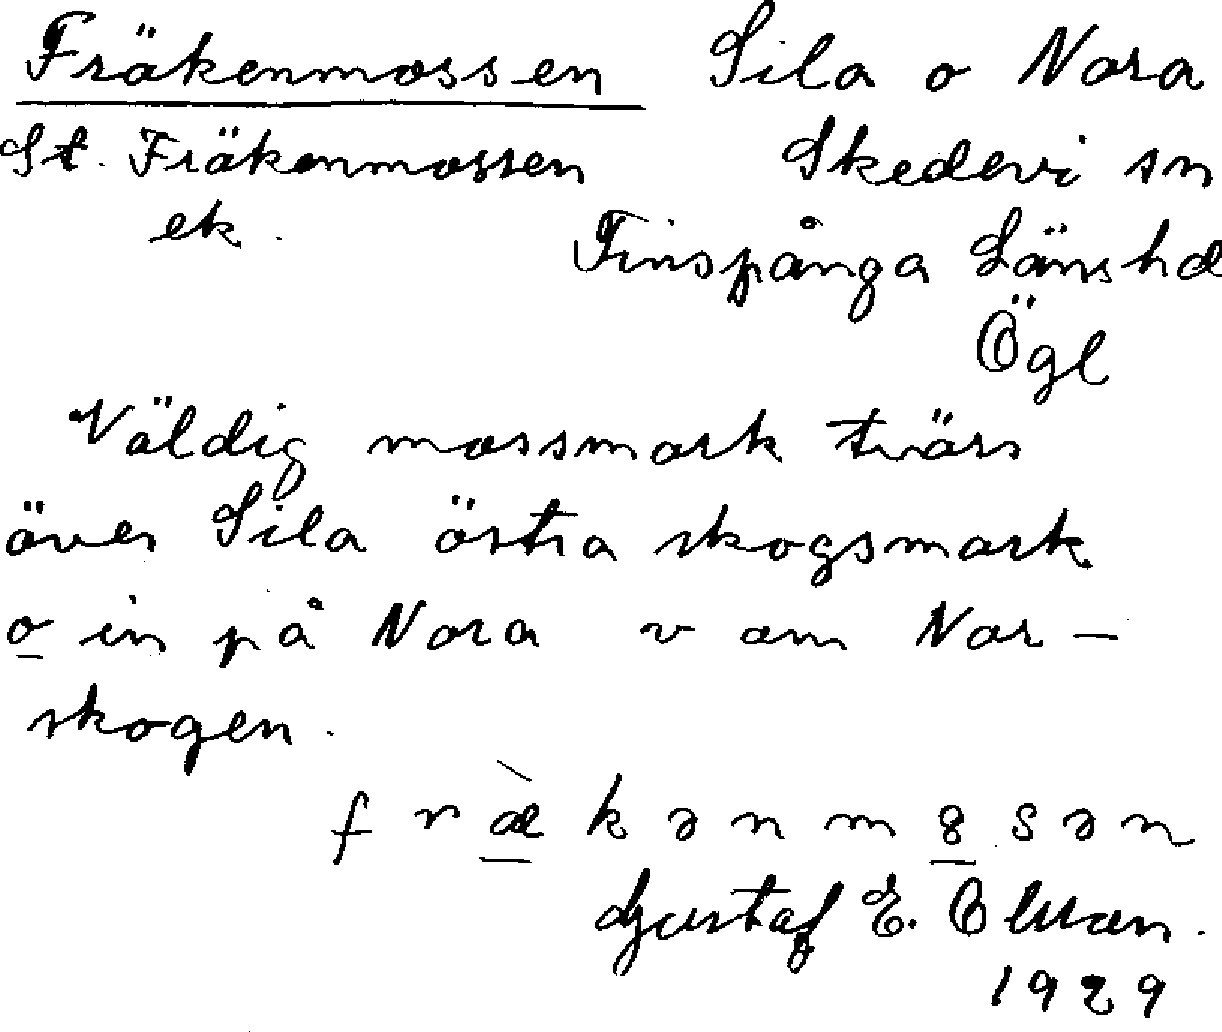 Fräkenmossen Sila o Nora
St. Fräkenmossen Skedevi sn
ek. Finspånga Länshd
Ögl
Väldig mossmark tvärs
över Sila östra skogsmark
o in på Nora v om Nor-
skogen.
f r æ̀ k ə n m 8 s ə n
Gustaf E. Olsson.
1929